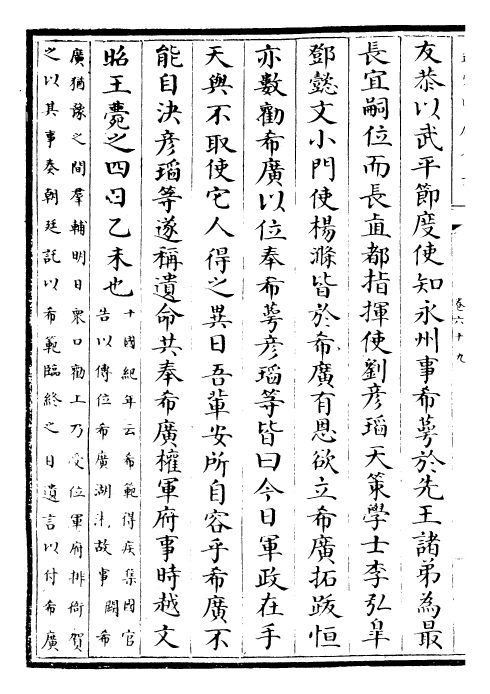 卷六十九
友恭以武平節度使知永州事希萼於先王諸弟為最
長宜嗣位而長直都指揮使劉彦瑫天策學士李弘臯
鄧懿文小門使楊滌皆於希廣有恩欲立希廣拓跋恒
亦數勸希廣以位奉希萼彦瑫等皆曰今日軍政在手
天與不取使它人得之異日吾輩安所自容乎希廣不
能自決彦瑫等遂稱遺命共奉希廣權軍府事時越文
昭王薨之四日乙未也
十國紀年云希範得疾集國官
告以傳位希廣湖湘故事闕希
廣猶豫之間羣輔明日衆口勸上乃受位軍府排衙賀
之以其事奏朝廷託以希範臨終之日遺言以付希廣